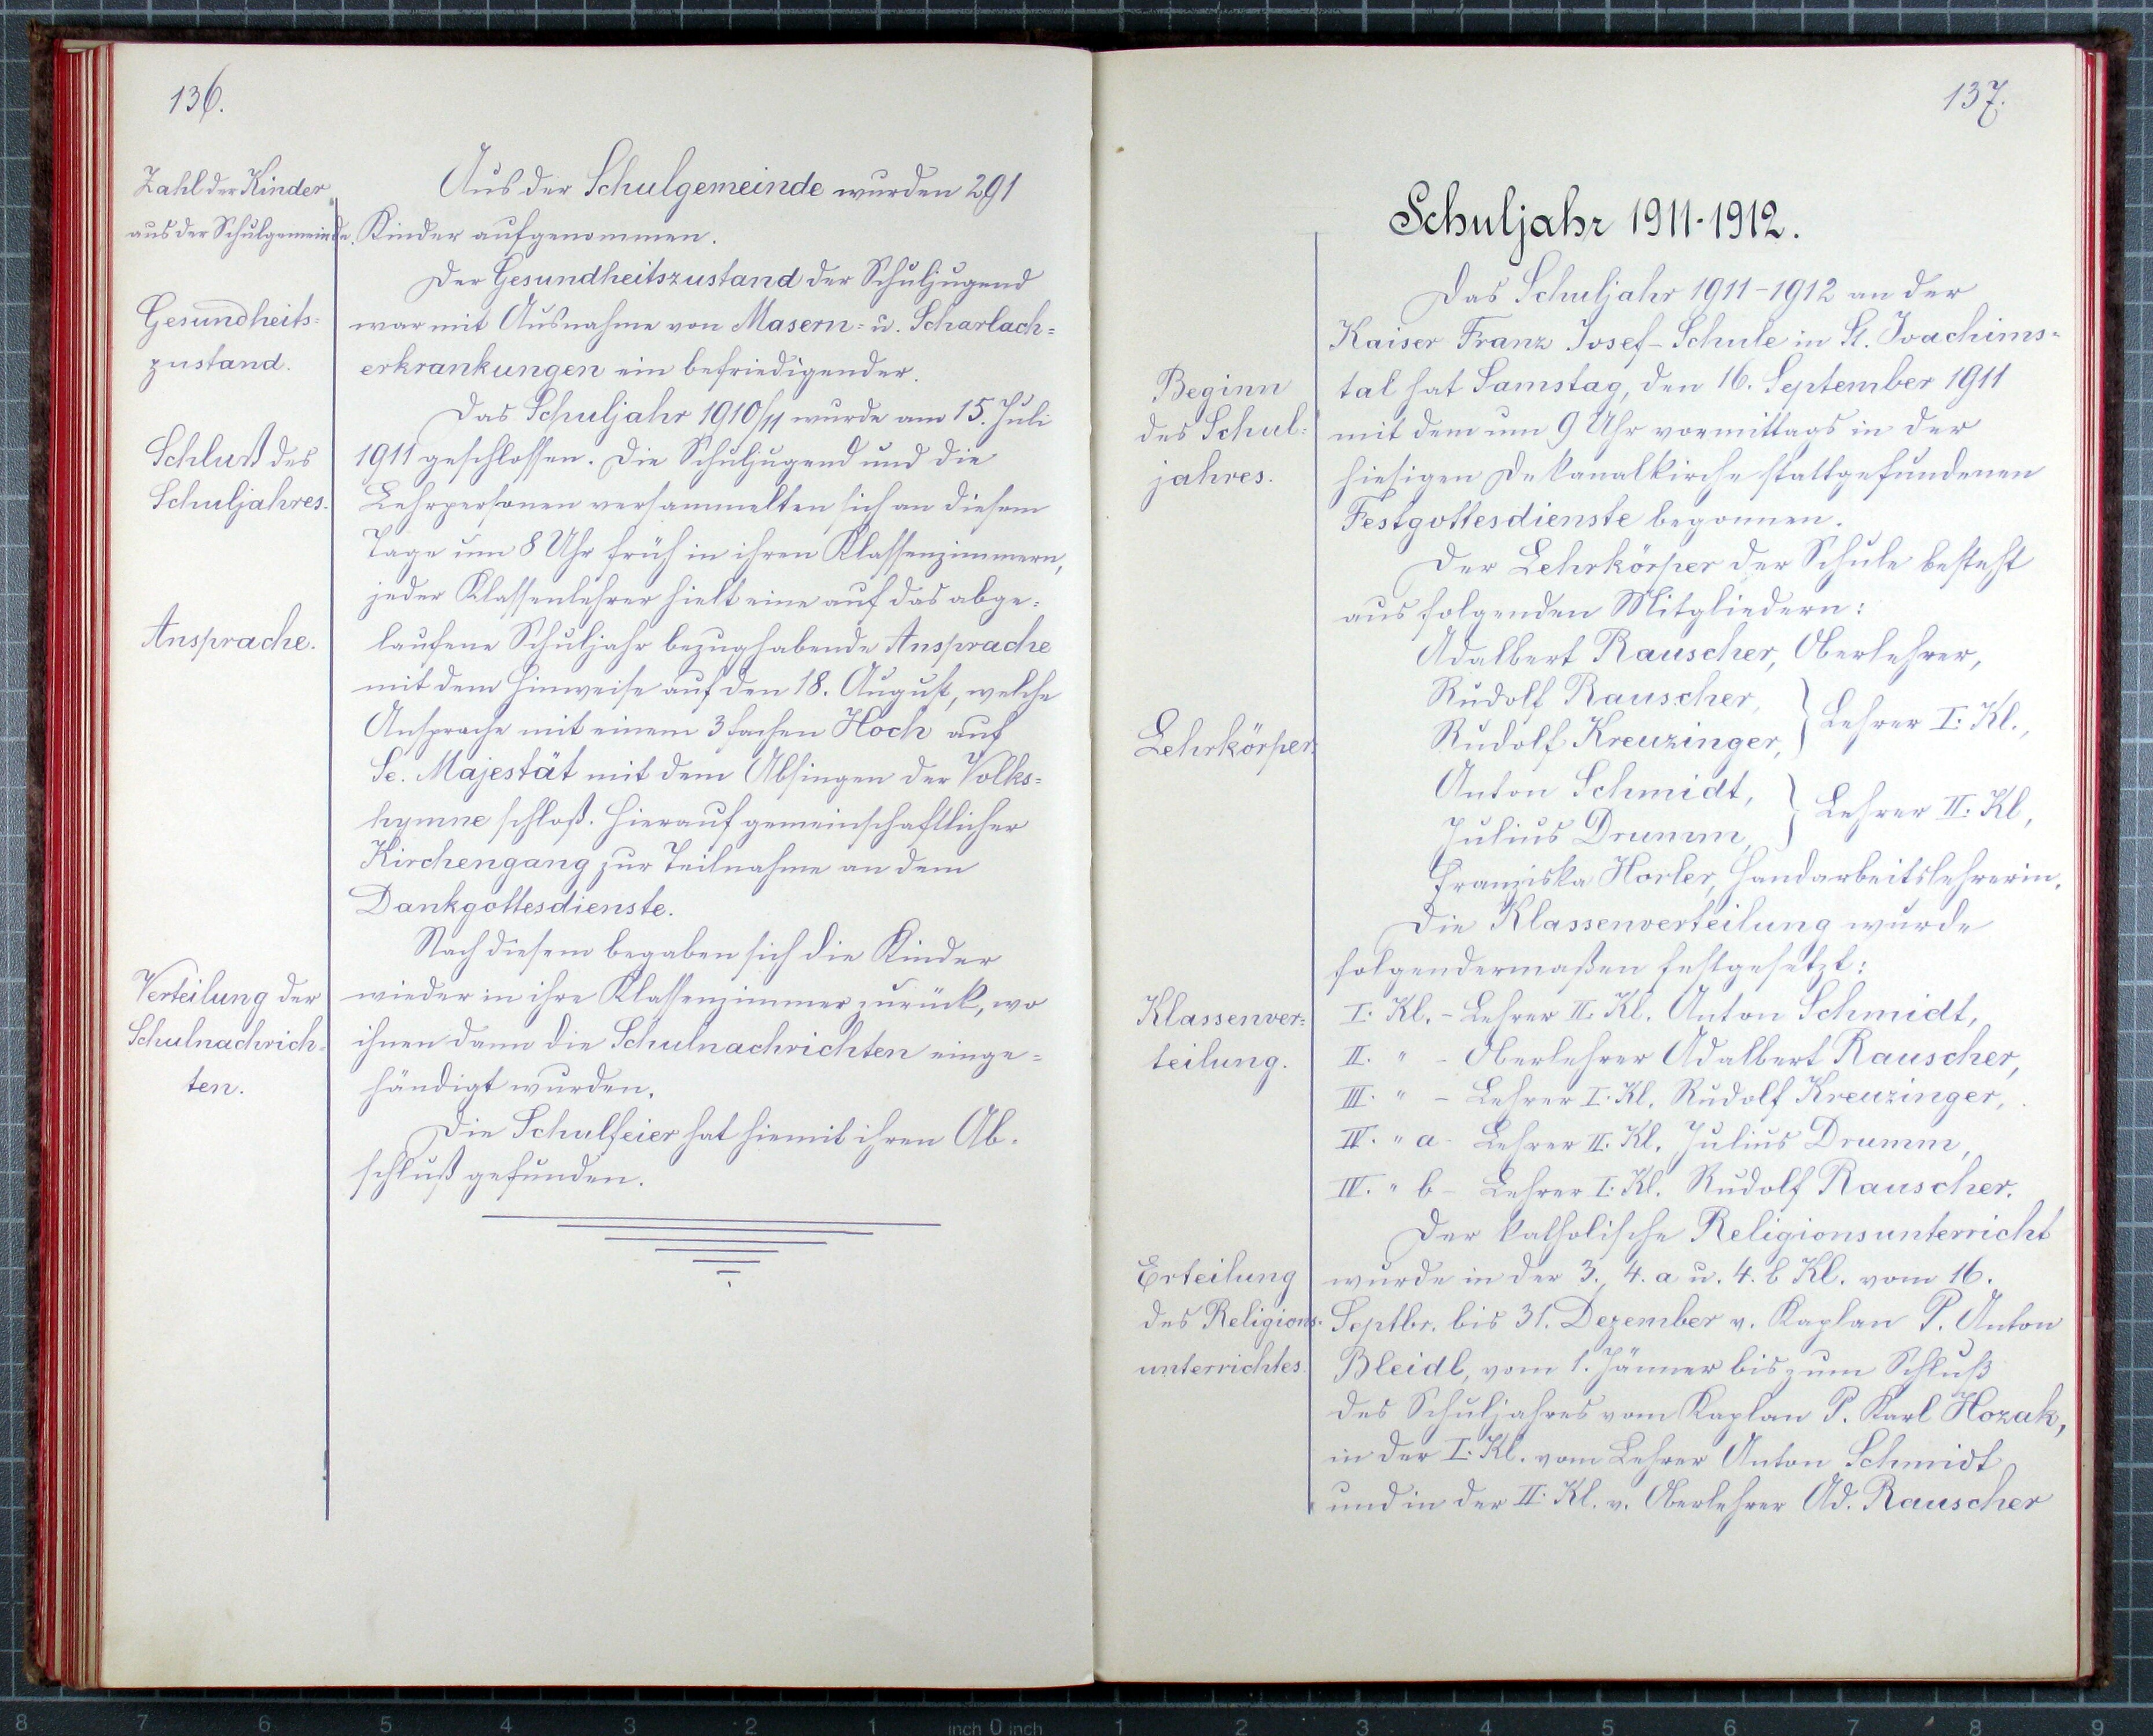 136.
Zahl der Kinder
aus der Schulgemeinde.
Aus der Schulgemeinde wurden 291
Kinder aufgenommen.
Gesundheits=
zustand.
Der Gesundheitszustand der Schuljugend
war mit Ausnahme von Masern= u. Scharlach=
erkrankungen ein befriedigender.
Schluß des
Schuljahres.
Das Schuljahr 1910/11 wurde am 15. Juli
1911 geschlossen. Die Schuljugend und die
Lehrpersonen versammelten sich an diesem
Tage um 8 Uhr früh in ihren Klassenzimmern,
jeder Klassenlehrer hielt eine auf das abge=
Ansprache.
laufene Schuljahr bezughabende Ansprache
mit dem Hinweise auf den 18. August, welche
Ansprache mit einem 3fachen Hoch auf
Se. Majestät mit dem Absingen der Volks=
hymne schloß. Hierauf gemeinschaftlicher
Kirchengang zur Teilnahme an dem
Dankgottesdienste.
Verteilung der
Schulnachrich=
ten.
Nach diesem begaben sich die Kinder
wieder in ihre Klassenzimmer zurück, wo
ihnen dann die Schulnachrichten einge=
händigt wurden.
Die Schulfeier hat hiemit ihren Ab=
schluß gefunden.
137.
Schuljahr 1911-1912.
Beginn
des Schul=
jahres.
Das Schuljahr 1911-1912 an der
Kaiser Franz Josef-Schule in St. Joachims=
tal hat Samstag, den 16. September 1911
mit dem um 9 Uhr vormittags in der
hiesigen Dekanalkirche stattgefundenen
Festgottesdienste begonnen.
Lehrkörper.
Der Lehrkörper der Schule besteht
aus folgenden Mitgliedern:
Adalbert Rauscher, Oberlehrer,
Rudolf Rauscher,
Rudolf Kreuzinger, } Lehrer I. Kl.,
Anton Schmidt,
Julius Drumm, } Lehrer II. Kl,
Franziska Horler, Handarbeitslehrerin.
Klassenver=
teilung.
Die Klassenverteilung wurde
folgendermaßen festgesetzt:
I. Kl. - Lehrer II. Kl. Anton Schmidt,
II. " - Oberlehrer Adalbert Rauscher,
III. " - Lehrer I. Kl. Rudolf Kreuzinger,
IV. " a - Lehrer II. Kl. Julius Drumm,
IV. " b - Lehrer I. Kl. Rudolf Rauscher.
Erteilung
des Religions=
unterrichtes.
Der katholische Religionsunterricht
wurde in der 3., 4. a u. 4. b Kl. vom 16.
Septbr. bis 31. Dezember v. Kaplan P. Anton
Bleidl, vom 1. Jänner bis zum Schluß
des Schuljahres vom Kaplan P. Karl Hozak,
in der I. Kl. vom Lehrer Anton Schmidt
und in der II. Kl. v. Oberlehrer Ad. Rauscher
8 7 6 5 4 3 2 1 inch 0 inch 1 2 3 4 5 6 7 8 9